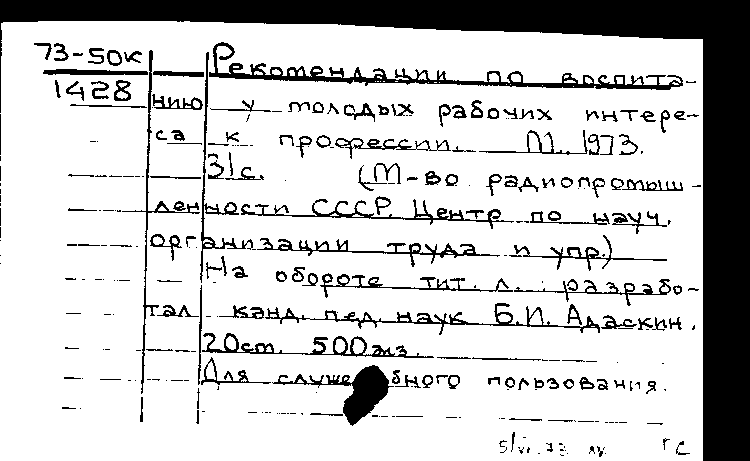 73-50к
1428
Рекомендации по воспита-
нию у молодых рабочих интере-
са к профессии. М., 1973.
31с. (М-во радиопромыш-
ленности СССР. Центр по науч.
организации труда и упр.)
На обороте тит. л.: разрабо-
тал канд. пед. наук Б.И. Адаскин.
20см. 500экз.
Для служебного пользования.
ГС